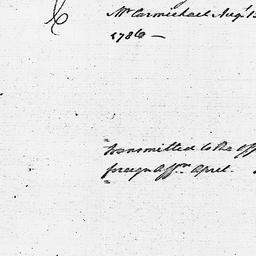 Mr Carmichael Aug
1786 —
transmitted to the Off
foreign Affrs April.